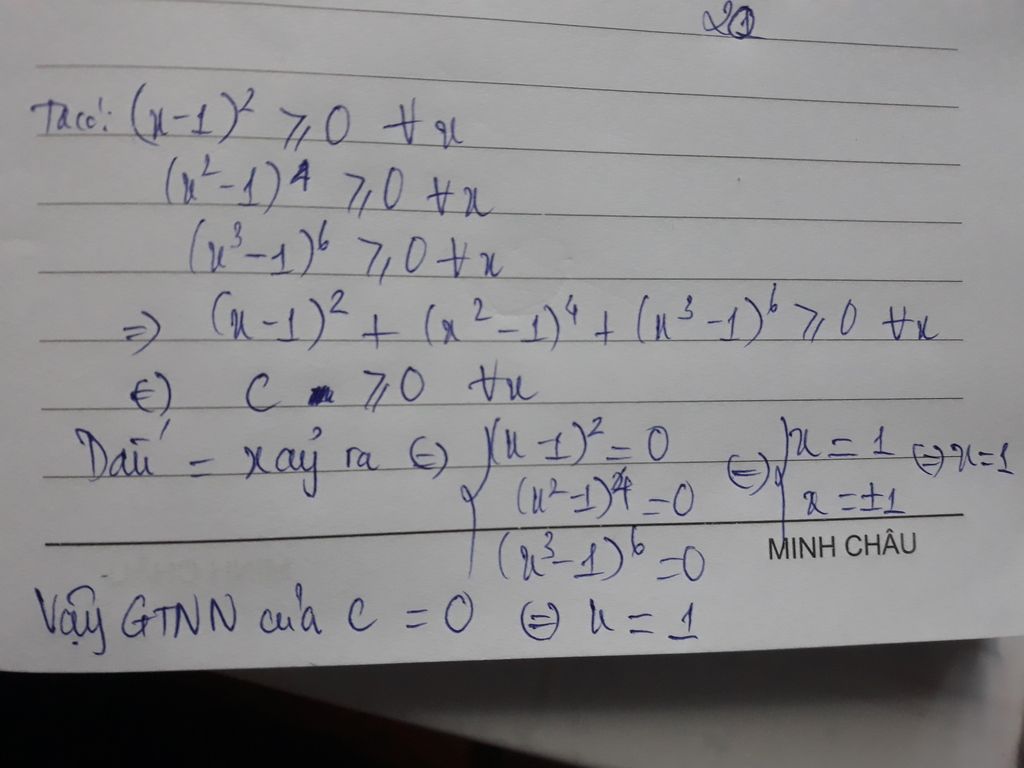 20
Ta có: (x-1)² ≥ 0 ∀x
(x²-1)⁴ ≥ 0 ∀x
(x³-1)⁶ ≥ 0 ∀x
⇒ (x-1)² + (x²-1)⁴ + (x³-1)⁶ ≥ 0 ∀x
⇔ C ≥ 0 ∀x
Dấu = xảy ra ⇔ { (x-1)² = 0 ⇔ { x = 1 ⇔ x = 1
(x²-1)⁴ = 0 x = ±1
(x³-1)⁶ = 0
MINH CHÂU
Vậy GTNN của C = 0 ⇔ x = 1